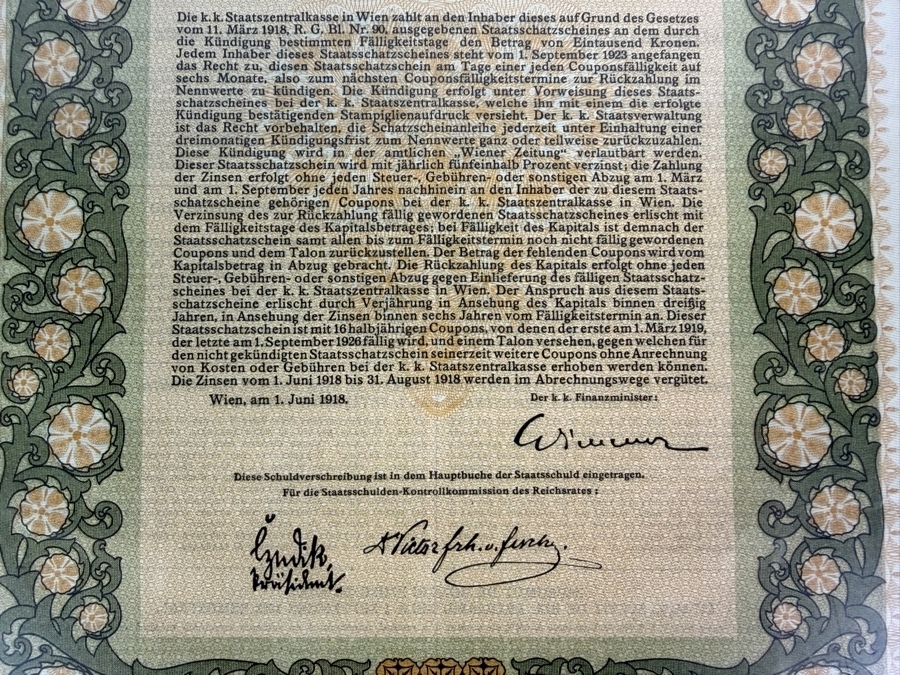 Die k. k. Staatszentralkasse in Wien zahlt an den Inhaber dieses auf Grund des Gesetzes
vom 11. März 1918, R. G. Bl. Nr. 90, ausgegebenen Staatsschatzscheines an dem durch
die Kündigung bestimmten Fälligkeitstage den Betrag von Eintausend Kronen.
Jedem Inhaber dieses Staatsschatzscheines steht vom 1. September 1923 angefangen
das Recht zu, diesen Staatsschatzschein am Tage einer jeden Couponsfälligkeit auf
sechs Monate, also zum nächsten Couponsfälligkeitstermine zur Rückzahlung im
Nennwerte zu kündigen. Die Kündigung erfolgt unter Vorweisung dieses Staats-
schatzscheines bei der k. k. Staatszentralkasse, welche ihn mit einem die erfolgte
Kündigung bestätigenden Stampiglienaufdruck versieht. Der k. k. Staatsverwaltung
ist das Recht vorbehalten, die Schatzscheinanleihe jederzeit unter Einhaltung einer
dreimonatigen Kündigungsfrist zum Nennwerte ganz oder teilweise zurückzuzahlen.
Diese Kündigung wird in der amtlichen „Wiener Zeitung" verlautbart werden.
Dieser Staatsschatzschein wird mit jährlich fünfeinhalb Prozent verzinst; die Zahlung
der Zinsen erfolgt ohne jeden Steuer-, Gebühren- oder sonstigen Abzug am 1. März
und am 1. September jeden Jahres nachhinein an den Inhaber der zu diesem Staats-
schatzscheine gehörigen Coupons bei der k. k. Staatszentralkasse in Wien. Die
Verzinsung des zur Rückzahlung fällig gewordenen Staatsschatzscheines erlischt mit
dem Fälligkeitstage des Kapitalsbetrages; bei Fälligkeit des Kapitals ist demnach der
Staatsschatzschein samt allen bis zum Fälligkeitstermin noch nicht fällig gewordenen
Coupons und dem Talon zurückzustellen. Der Betrag der fehlenden Coupons wird vom
Kapitalsbetrag in Abzug gebracht. Die Rückzahlung des Kapitals erfolgt ohne jeden
Steuer-, Gebühren- oder sonstigen Abzug gegen Einlieferung des fälligen Staatsschatz-
scheines bei der k. k. Staatszentralkasse in Wien. Der Anspruch aus diesem Staats-
schatzscheine erlischt durch Verjährung in Ansehung des Kapitals binnen dreißig
Jahren, in Ansehung der Zinsen binnen sechs Jahren vom Fälligkeitstermin an. Dieser
Staatsschatzschein ist mit 16 halbjährigen Coupons, von denen der erste am 1. März 1919,
der letzte am 1. September 1926 fällig wird, und einem Talon versehen, gegen welchen für
den nicht gekündigten Staatsschatzschein seinerzeit weitere Coupons ohne Anrechnung
von Kosten oder Gebühren bei der k. k. Staatszentralkasse erhoben werden können.
Die Zinsen vom 1. Juni 1918 bis 31. August 1918 werden im Abrechnungswege vergütet.
Wien, am 1. Juni 1918.
Der k. k. Finanzminister:
Wimmer
Diese Schuldverschreibung ist in dem Hauptbuche der Staatsschuld eingetragen.
Für die Staatsschulden-Kontrollkommission des Reichsrates:
Präsident.
Victor frh. v.